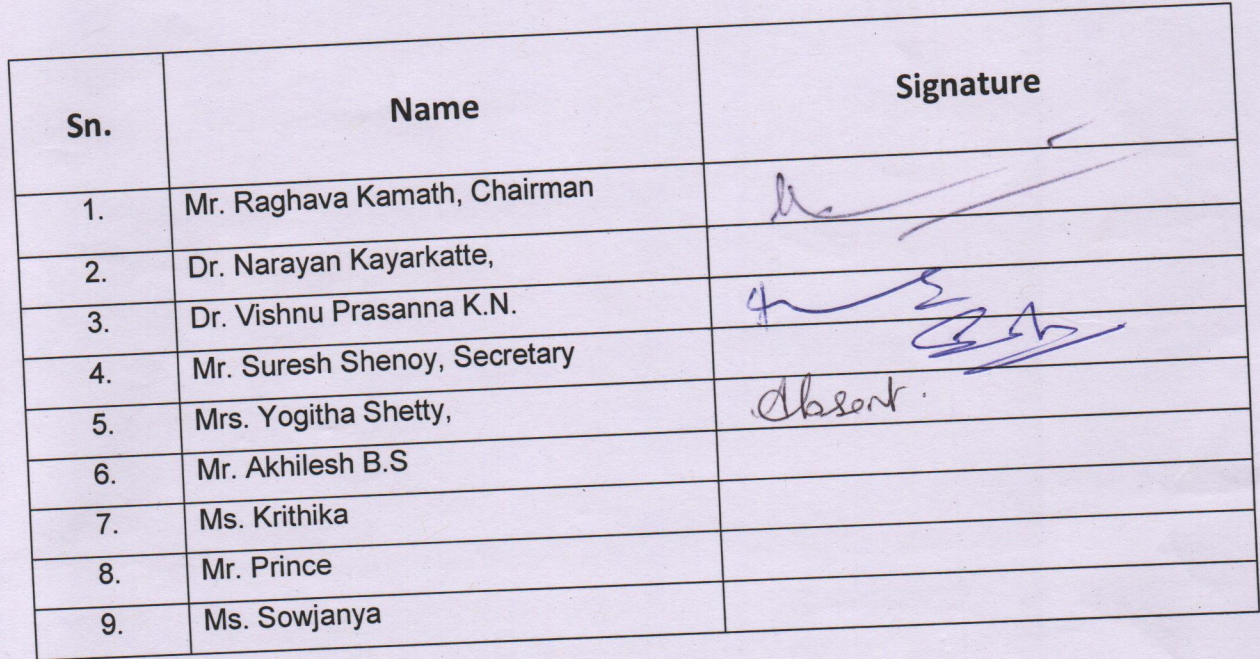 Sn. Name Signature
1. Mr. Raghava Kamath, Chairman
2. Dr. Narayan Kayarkatte,
3. Dr. Vishnu Prasanna K.N.
4. Mr. Suresh Shenoy, Secretary
5. Mrs. Yogitha Shetty, Absent.
6. Mr. Akhilesh B.S
7. Ms. Krithika
8. Mr. Prince
9. Ms. Sowjanya